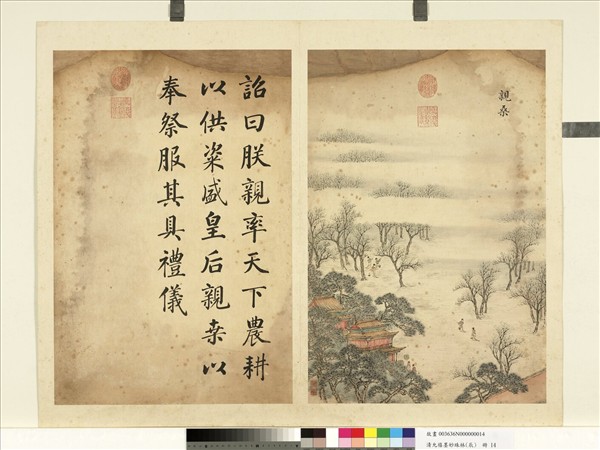 親桑
詔曰朕親率天下農耕
以供粢盛皇后親桒以
奉祭服其具禮儀
故畫 003636N000000014
清允禧墨妙珠林(辰) 冊 14